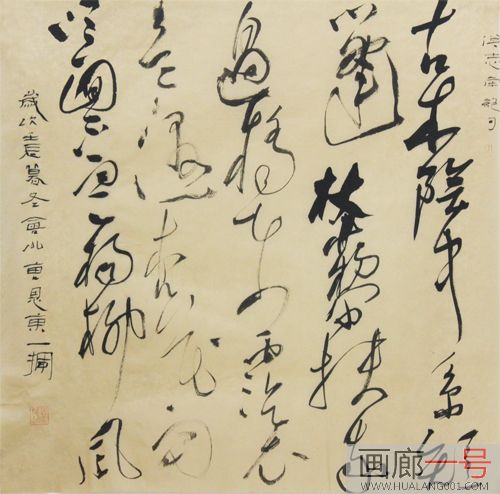 僧志南絕句
古木陰中系短
篷杖藜扶我
過橋東沾衣
欲濕杏花雨
吹面不寒楊柳風
歲次壬辰暮冬
一揮
画廊一号
WWW.HUALANG001.COM